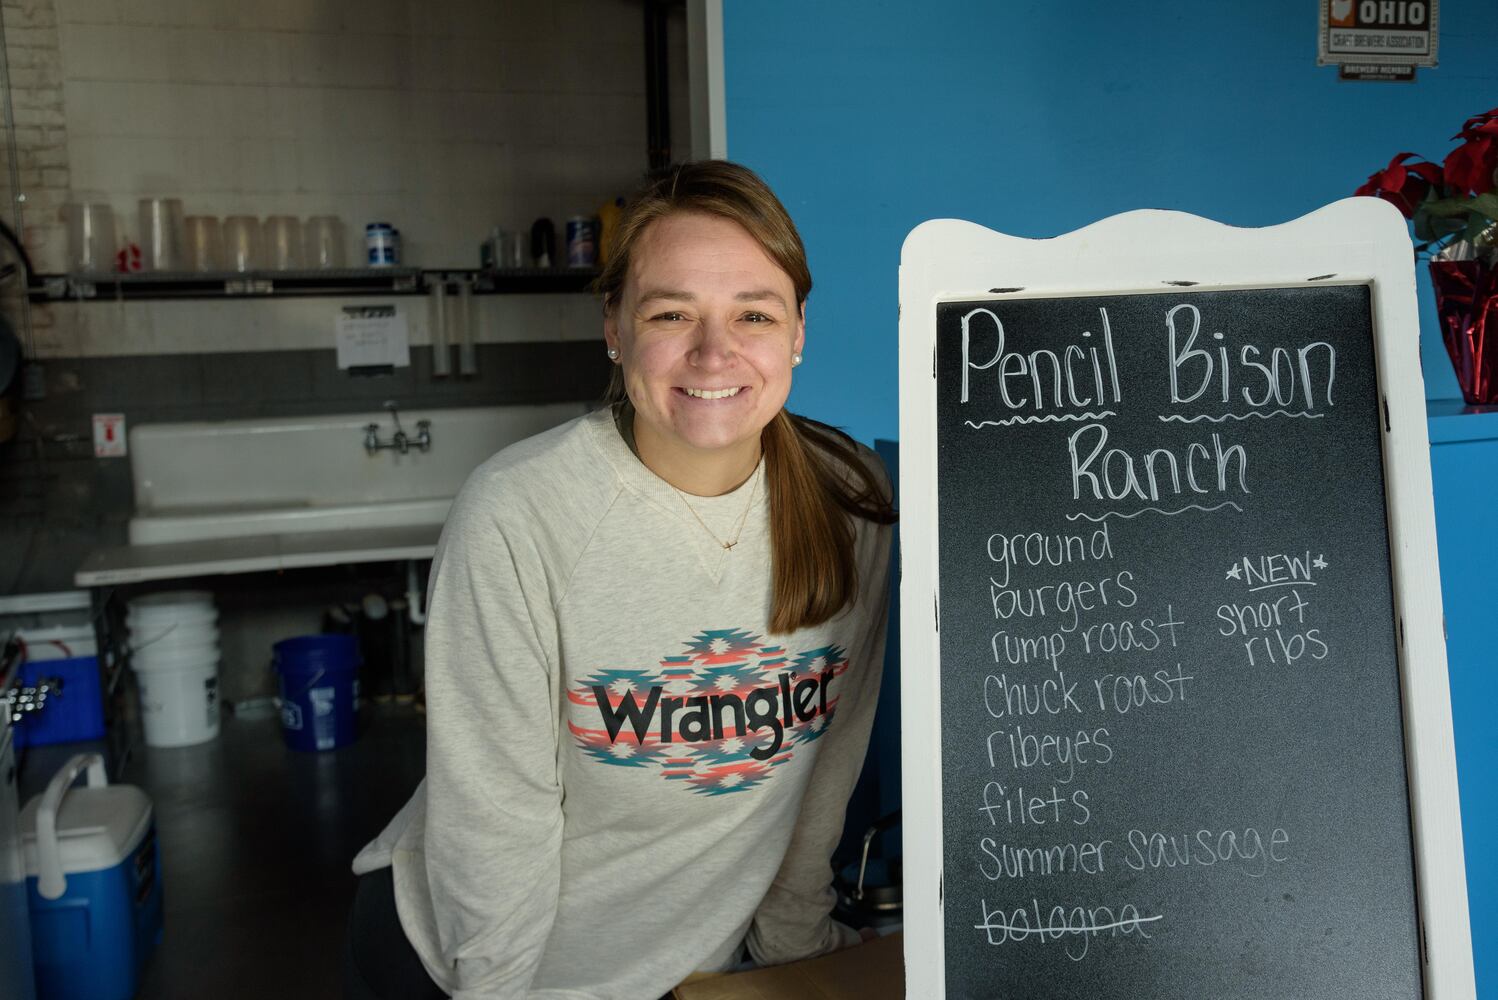 OHIO
CRAFT BREWERS ASSOCIATION
BREWERY MEMBER
Pencil Bison
Ranch
ground
burgers
rump roast
chuck roast
ribeyes
filets
summer sausage
bologna
*NEW*
short
ribs
Wrangler